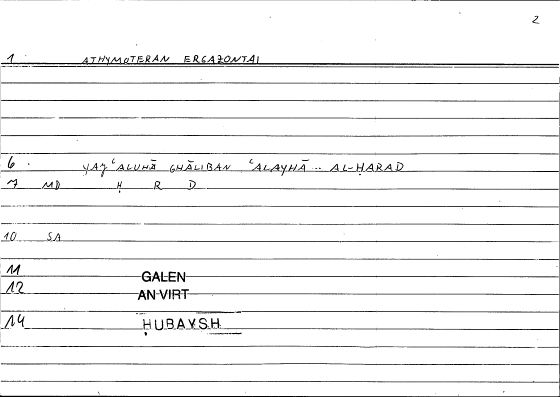 2
1 ATHYMOTERAN ERGAZONTAI
6. YAJʿALUHĀ GHĀLIBAN ʿALAYHĀ .. AL-ḤARAD
7 MD Ḥ R D
10 SA
11 GALEN
12 AN VIRT
14 ḤUBAYSH